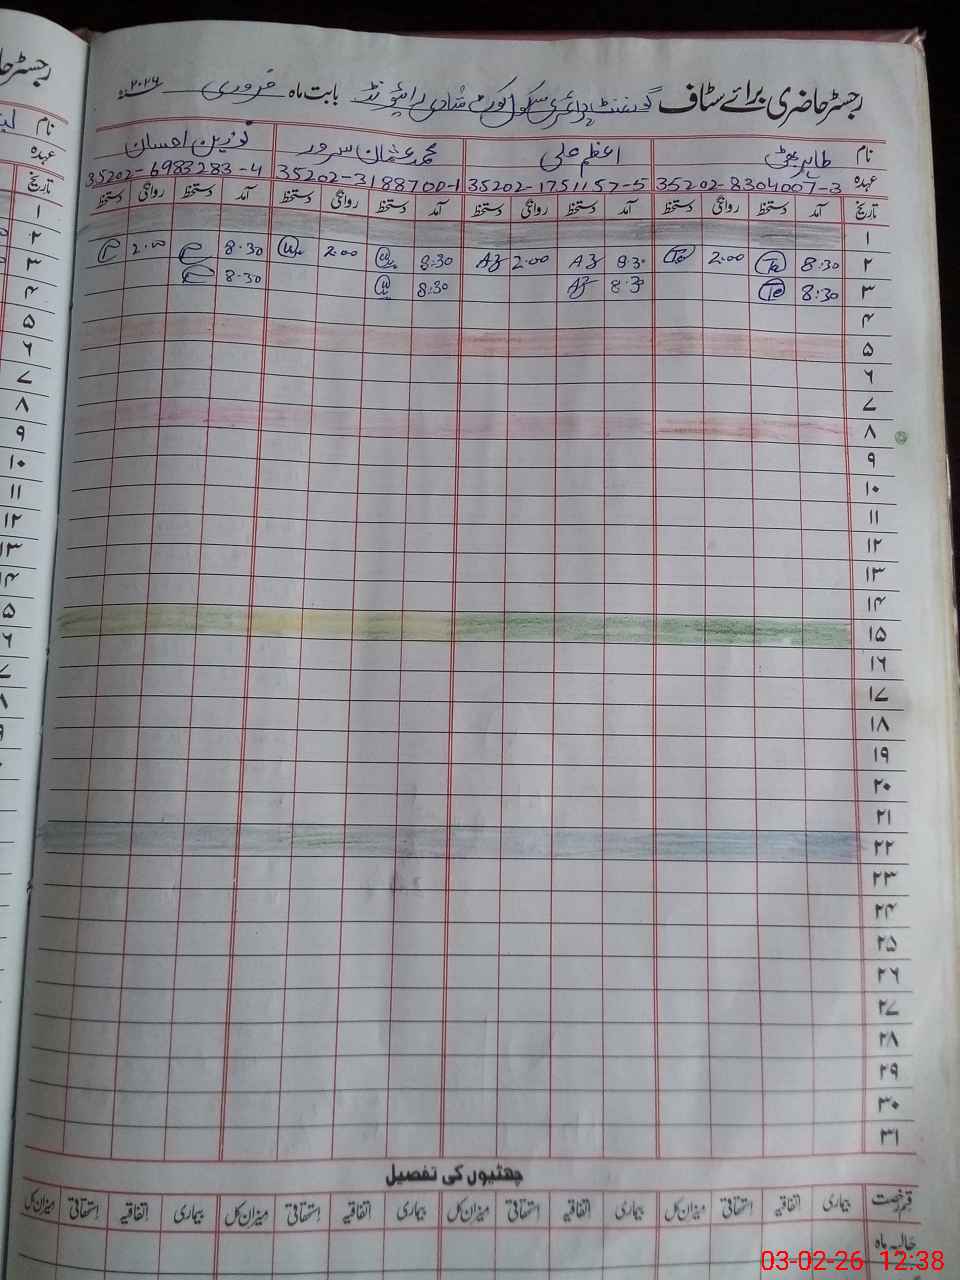 رجسٹر حاضری برائے سٹاف گورنمنٹ پرائمری سکول کوٹ شادی رائیونڈ بابت ماہ فروری ۲۰۲۶
نام طاہر بھٹی اعظم علی محمد عثمان سرور نوزین احسان
عہدہ 35202-8304007-3 35202-1751157-5 35202-3188700-1 35202-6983283-4
تاریخ آمد دستخط روانگی دستخط آمد دستخط روانگی دستخط آمد دستخط روانگی دستخط آمد دستخط روانگی دستخط
۱
۲ 8:30 Ta 2.00 Ta 8:30 AZ 2.00 AZ 8:30 2.00 8.30 2.00
۳ 8:30 Ta 8:30 AZ 8:30 8.30
۴
۵
۶
۷
۸
۹
۱۰
۱۱
۱۲
۱۳
۱۴
۱۵
۱۶
۱۷
۱۸
۱۹
۲۰
۲۱
۲۲
۲۳
۲۴
۲۵
۲۶
۲۷
۲۸
۲۹
۳۰
۳۱
چھٹیوں کی تفصیل
قسم رخصت بیماری اتفاقیہ استحقاقی میزان کل بیماری اتفاقیہ استحقاقی میزان کل بیماری اتفاقیہ استحقاقی میزان کل بیماری اتفاقیہ استحقاقی میزان کل
حالیہ ماہ
03-02-26 12:38
رجسٹر حا
نام
عہدہ
تاریخ
۱
۲
۳
۴
۵
۶
۷
۸
۹
۱۰
۱۱
۱۲
۱۳